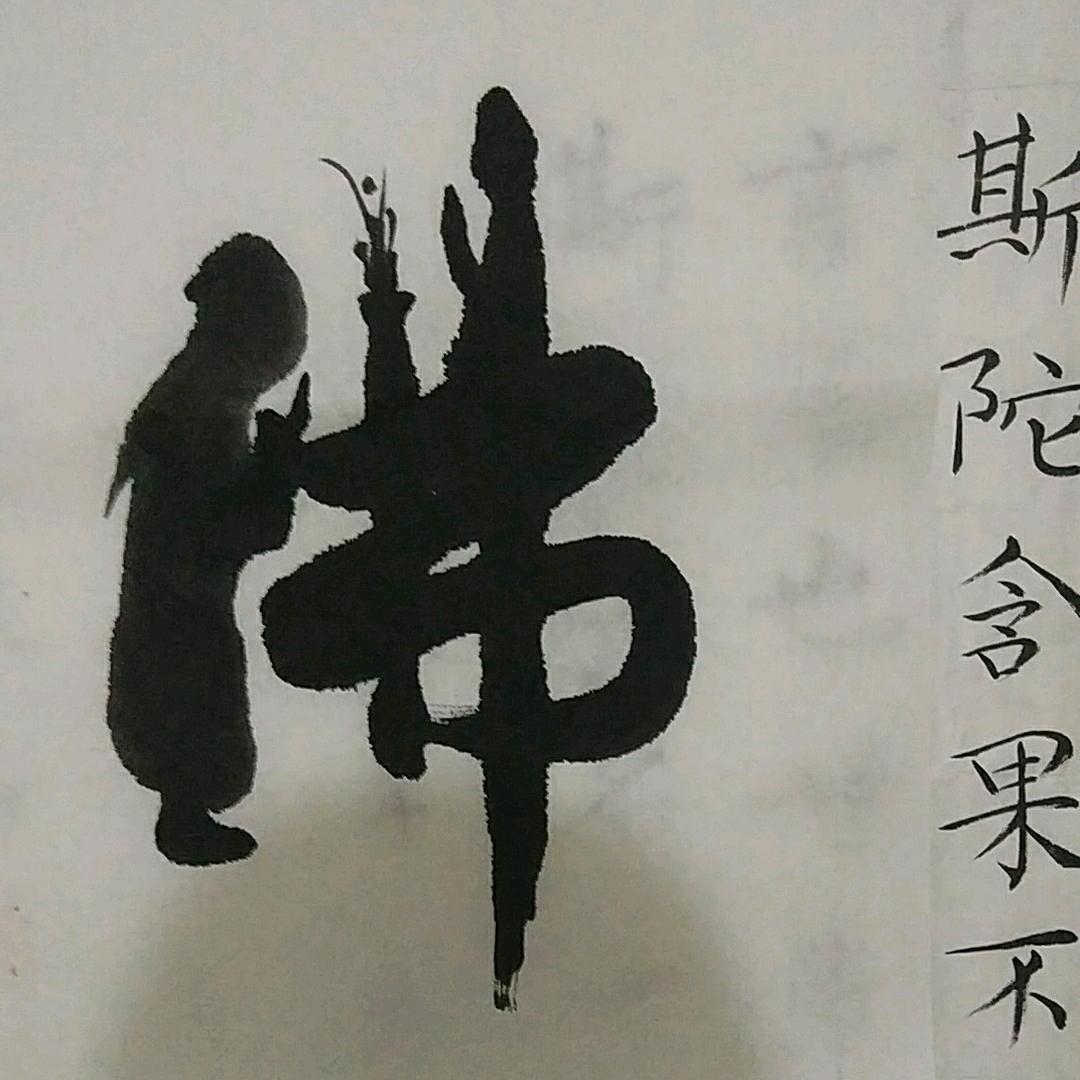 斯陀含果不
佛